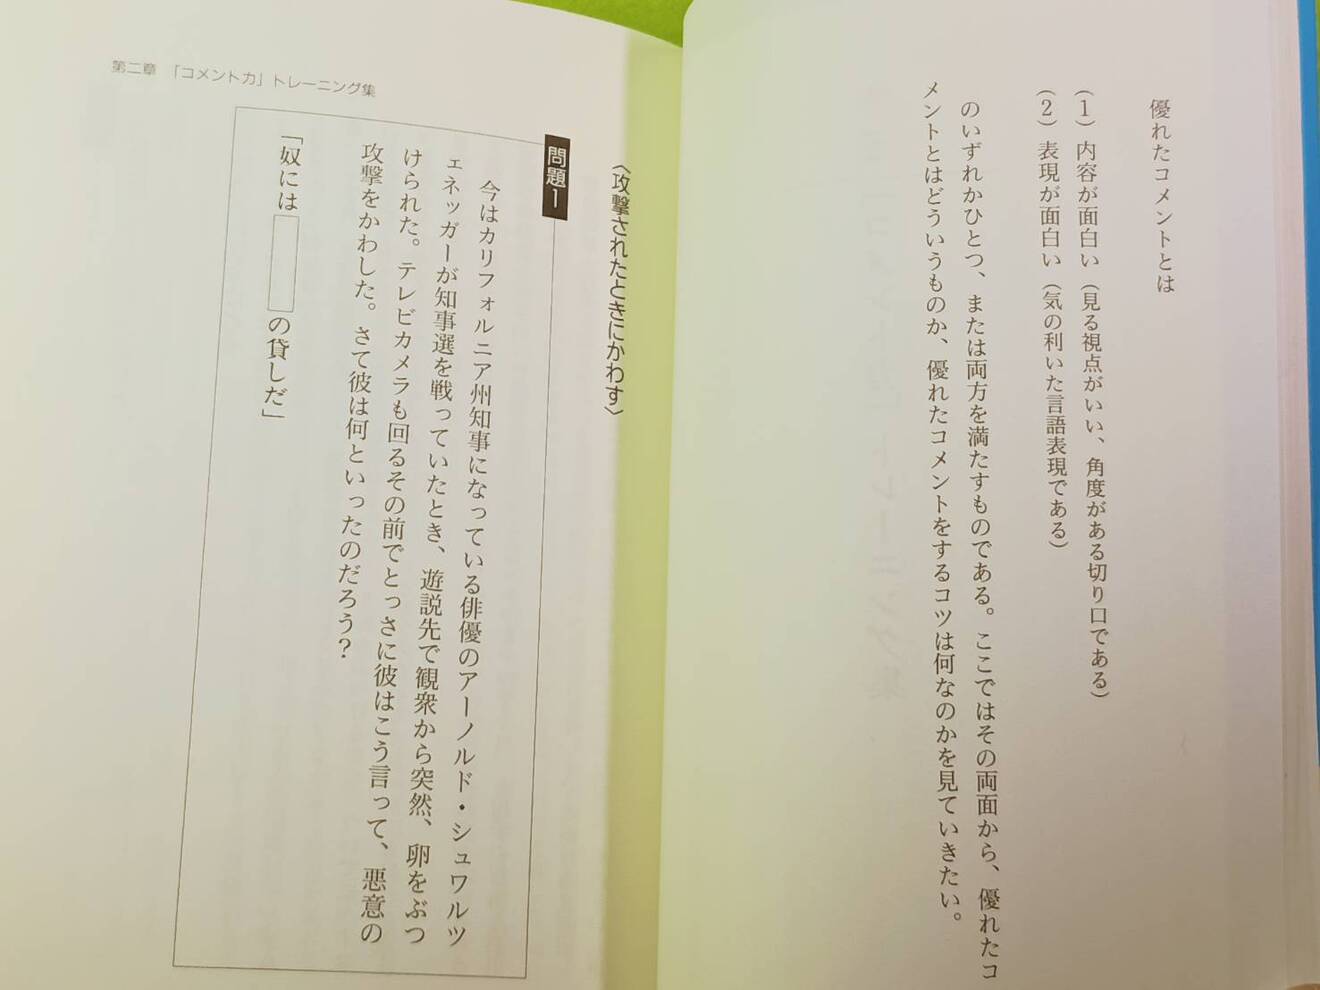 優れたコメントとは
(1) 内容が面白い（見る視点がいい、角度がある切り口である）
(2) 表現が面白い（気の利いた言語表現である）
のいずれかひとつ、または両方を満たすものである。ここではその両面から、優れたコ
メントとはどういうものか、優れたコメントをするコツは何なのかを見ていきたい。
第二章 「コメント力」トレーニング集
〈攻撃されたときにかわす〉
問題1
今はカリフォルニア州知事になっている俳優のアーノルド・シュワルツ
ェネッガーが知事選を戦っていたとき、遊説先で観衆から突然、卵をぶつ
けられた。テレビカメラも回るその前でとっさに彼はこう言って、悪意の
攻撃をかわした。さて彼は何といったのだろう？
「奴には の貸しだ」